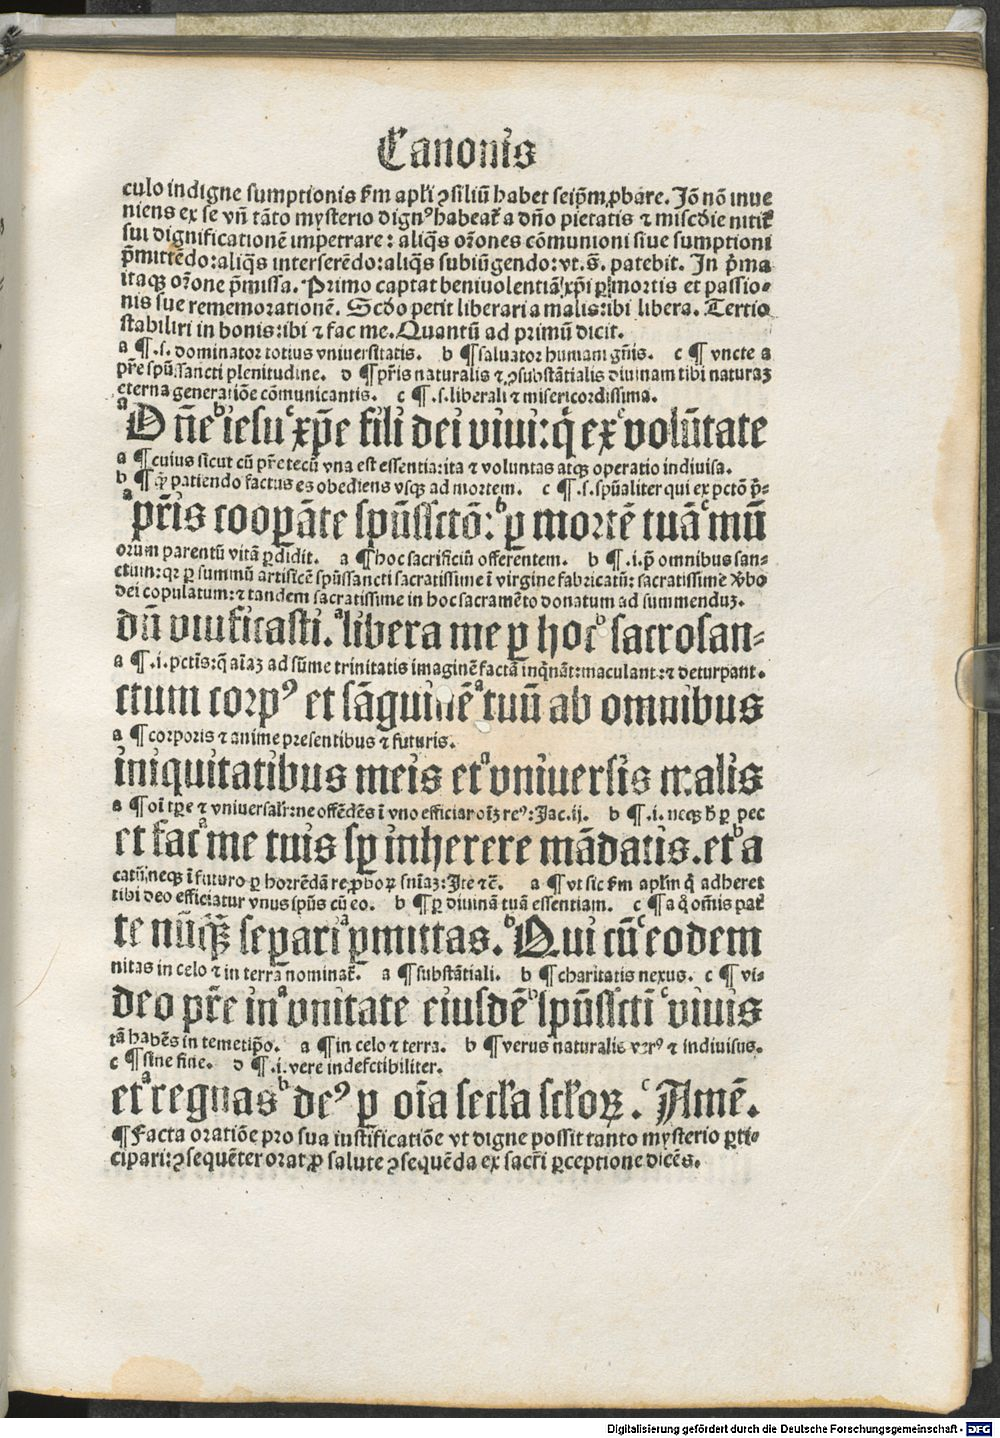 Canonis
culo indigne sumptionis ẜm apl'i ꝯsiliū habet seip̄m ꝓbare. Jō nō inue
niens ex se vn̄ tāto mysterio dignꝰ habeat̉ a dn̄o pietatis ⁊ mi̅s̅c̅die nitit̉
sui dignificationē impetrare: aliq̄s or̄ones cōmunioni siue sumptioni
p̄mittēdo: aliq̄s interserēdo: aliq̄s subiūgendo: vt.s̄. patebit. In p̄ma
itaqꝫ or̄one p̄missa. Primo captat beniuolentiā xp̄i ꝑ mortis et passio-
nis sue rememorationē. Scd̄o petit liberari a malis: ibi libera. Tertio
stabiliri in bonis: ibi ⁊ fac me. Quantū ad primū dicit.
a ¶ .s. dominator totius vniuersitatis. b ¶ saluator humani gn̄is. c ¶ vncte a
pr̄e spūssancti plenitudine. d ¶ pr̄is naturalis ⁊ ꝯsubstātialis diuinam tibi naturaꝫ
eterna generatiōe cōmunicantis. c ¶ .s. liberali ⁊ misericordissima.
a Dn̄e b iesu c xp̄e fili dei viui: q̄ ex c volūtate
a ¶ cuius sicut cū pr̄e tecū vna est essentia: ita ⁊ voluntas atqꝫ operatio indiuisa.
b ¶ qꝛ patiendo factus es obediens vsqꝫ ad mortem. c ¶ .s. spūaliter qui ex pctō p̄-
a pr̄is cooꝑāte spūssctō: b ꝑ mortē tuā c mū
orum parentū vitā ꝑdidit. a ¶ hoc sacrificiū offerentem. b ¶ .i. p̄ omnibus san-
ctum: qꝛ ꝑ summū artificē spūssancti sacratissime ī virgine fabricatū: sacratissime v̓bo
dei copulatum: ⁊ tandem sacratissime in hoc sacramēto donatum ad summenduꝫ.
dū viuificasti. a libera me ꝑ hoc b sacrosan-
a ¶ .i. pctīs: q̄ aīaꝫ ad sūme trinitatis imaginē factā inq̄nāt: maculant: ⁊ deturpant.
ctum corpꝰ et sāguinē a tuū ab omnibus
a ¶ corporis ⁊ anime presentibus ⁊ futuris.
iniquitatibus meis et a vniuersis malis
a ¶ oī tꝑe ⁊ vniuersali: ne offēdēs ī vno efficiar oīꝫ reꝰ: Jac.ij. b ¶ .i. neqꝫ h̄ ꝑ pec
et fac a me tuis sꝑ inherere mādatis. et b a
catū, neqꝫ ī futuro ꝑ horrēdā reꝓboꝝ sn̄iaꝫ: Ite ⁊c̄. a ¶ vt sic ẜm apl̄m q̄ adheret
tibi deo efficiatur vnus spūs cū eo. b ¶ ꝑ diuinā tuā essentiam. c ¶ a q̄ om̄is pat̉
te nūqꝫ̄ separari a ꝑmittas. b Qui cū c eodem
nitas in celo ⁊ in terra nominat̉. a ¶ substātiali. b ¶ charitatis nexus. c ¶ vi-
deo pr̄e in a vnitate eiusdē b spūsscti c viuis
tā habēs in temetip̄o. a ¶ in celo ⁊ terra. b ¶ verus naturalis verꝰ ⁊ indiuisus.
c ¶ sine fine. d ¶ .i. vere indefectibiliter.
et a regnas b deꝰ ꝑ oīa secl'a scl'oꝝ. c Amē.
¶ Facta oratiōe pro sua iustificatiōe vt digne possit tanto mysterio ꝑti-
cipari: ꝯsequēter orat ꝓ salute ꝯsequēda ex sacr̄i ꝑceptione dicēs.
Digitalisierung gefördert durch die Deutsche Forschungsgemeinschaft - DFG